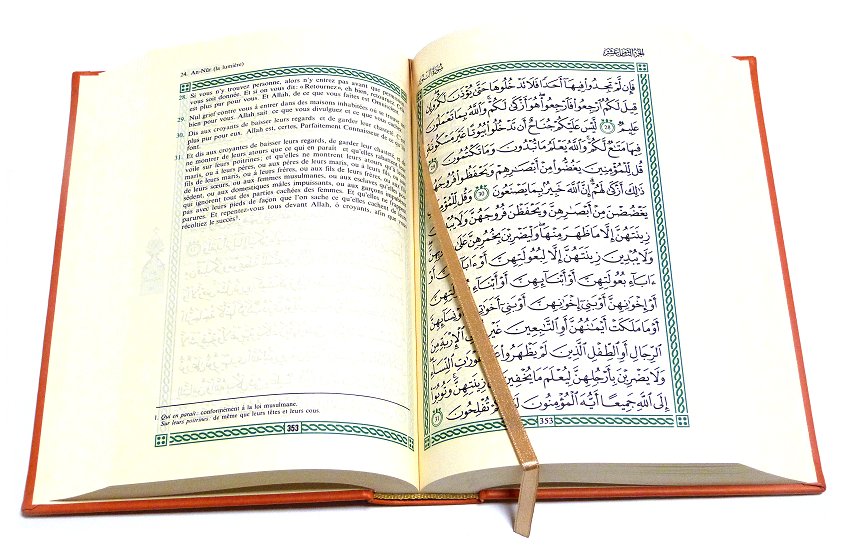 24. An-Nûr (la lumière)
28. Si vous n'y trouvez personne, alors n'y entrez pas avant que
vous soit donnée. Et si on vous dit: «Retournez», eh bien, retournez.
est plus pur pour vous. Et Allah, de ce que vous faites est
29. Nul grief contre vous à entrer dans des maisons inhabitées où se
bien pour vous. Allah sait ce que vous divulguez et ce que vous
30. Dis aux croyants de baisser leurs regards et de garder leur chasteté.
plus pur pour eux. Allah est, certes, Parfaitement Connaisseur de ce
font.
31. Et dis aux croyantes de baisser leurs regards, de garder leur chasteté, et de
ne montrer de leurs atours que ce qui en paraît et qu'elles rabattent
voile sur leurs poitrines; et qu'elles ne montrent leurs atours qu'à
maris, ou à leurs pères, ou aux pères de leurs maris, ou à leurs fils, ou aux
fils de leurs maris, ou à leurs frères, ou aux fils de leurs frères, ou aux
de leurs sœurs, ou aux femmes musulmanes, ou aux esclaves qu'elles
sèdent, ou aux domestiques mâles impuissants, ou aux garçons impubères
qui ignorent tout des parties cachées des femmes. Et qu'elles ne frappent
pas avec leurs pieds de façon que l'on sache ce qu'elles cachent de leurs
parures. Et repentez-vous tous devant Allah, ô croyants, afin que
récoltiez le succès¹.
1. Qui en paraît: conformément à la loi musulmane.
Sur leurs poitrines: de même que leurs têtes et leurs cous.
353
الجزء الثامن عشر
سورة النور
فَإِن لَّمْ تَجِدُوا۟ فِيهَآ أَحَدًا فَلَا تَدْخُلُوهَا حَتَّىٰ يُؤْذَنَ لَكُمْ وَإِن
قِيلَ لَكُمُ ٱرْجِعُوا۟ فَٱرْجِعُوا۟ هُوَ أَزْكَىٰ لَكُمْ وَٱللَّهُ بِمَا تَعْمَلُونَ
عَلِيمٌ ٢٨ لَّيْسَ عَلَيْكُمْ جُنَاحٌ أَن تَدْخُلُوا۟ بُيُوتًا غَيْرَ مَسْكُونَةٍ
فِيهَا مَتَٰعٌ لَّكُمْ وَٱللَّهُ يَعْلَمُ مَا تُبْدُونَ وَمَا تَكْتُمُونَ ٢٩
قُل لِّلْمُؤْمِنِينَ يَغُضُّوا۟ مِنْ أَبْصَٰرِهِمْ وَيَحْفَظُوا۟ فُرُوجَهُمْ
ذَٰلِكَ أَزْكَىٰ لَهُمْ إِنَّ ٱللَّهَ خَبِيرٌۢ بِمَا يَصْنَعُونَ ٣٠ وَقُل لِّلْمُؤْمِنَٰتِ
يَغْضُضْنَ مِنْ أَبْصَٰرِهِنَّ وَيَحْفَظْنَ فُرُوجَهُنَّ وَلَا يُبْدِينَ
زِينَتَهُنَّ إِلَّا مَا ظَهَرَ مِنْهَا وَلْيَضْرِبْنَ بِخُمُرِهِنَّ عَلَىٰ جُيُوبِهِنَّ
وَلَا يُبْدِينَ زِينَتَهُنَّ إِلَّا لِبُعُولَتِهِنَّ أَوْ ءَابَآئِهِنَّ أَوْ
ءَابَآءِ بُعُولَتِهِنَّ أَوْ أَبْنَآئِهِنَّ أَوْ أَبْنَآءِ بُعُولَتِهِنَّ
أَوْ إِخْوَٰنِهِنَّ أَوْ بَنِىٓ إِخْوَٰنِهِنَّ أَوْ بَنِىٓ أَخَوَٰتِهِنَّ أَوْ نِسَآئِهِنَّ
أَوْ مَا مَلَكَتْ أَيْمَٰنُهُنَّ أَوِ ٱلتَّٰبِعِينَ غَيْرِ أُو۟لِى ٱلْإِرْبَةِ مِنَ
ٱلرِّجَالِ أَوِ ٱلطِّفْلِ ٱلَّذِينَ لَمْ يَظْهَرُوا۟ عَلَىٰ عَوْرَٰتِ ٱلنِّسَآءِ
وَلَا يَضْرِبْنَ بِأَرْجُلِهِنَّ لِيُعْلَمَ مَا يُخْفِينَ مِن زِينَتِهِنَّ وَتُوبُوٓا۟
إِلَى ٱللَّهِ جَمِيعًا أَيُّهَ ٱلْمُؤْمِنُونَ لَعَلَّكُمْ تُفْلِحُونَ ٣١
353